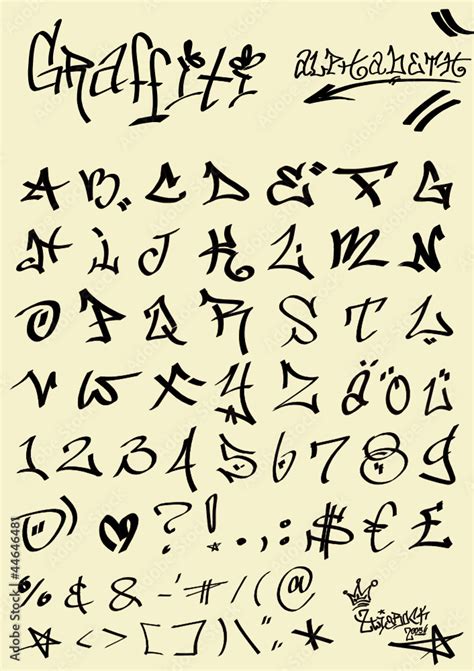 Graffiti alphabeth
A B C D E F G
H i J K L M N
O P Q R S T U
V W X Y Z ä ö ü
1 2 3 4 5 6 7 8 9
0 ? ! . , : ; $ € £
% & & - ' = # / ( ( @
* - < > [ ] ) \ " *
Adobe Stock | #44646481